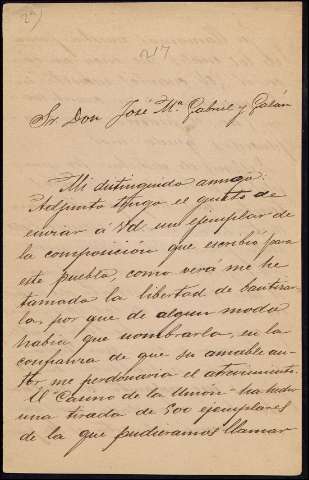 29)
217
Sr. Don José Mª Gabriel y Galán
Mi distinguido amigo:
Adjunto tengo el gusto de
enviar á Vd. un ejemplar de
la composición que escribió para
este pueblo, como verá me he
tomado la libertad de bautizar-
la, por que de algun modo
habia que nombrarla, en la
confianza de que su amable au-
tor me perdonaria el atrevimiento.
El Casino de la Unión ha hecho
una tirada de 500 ejemplares
de la que pudieramos llamar